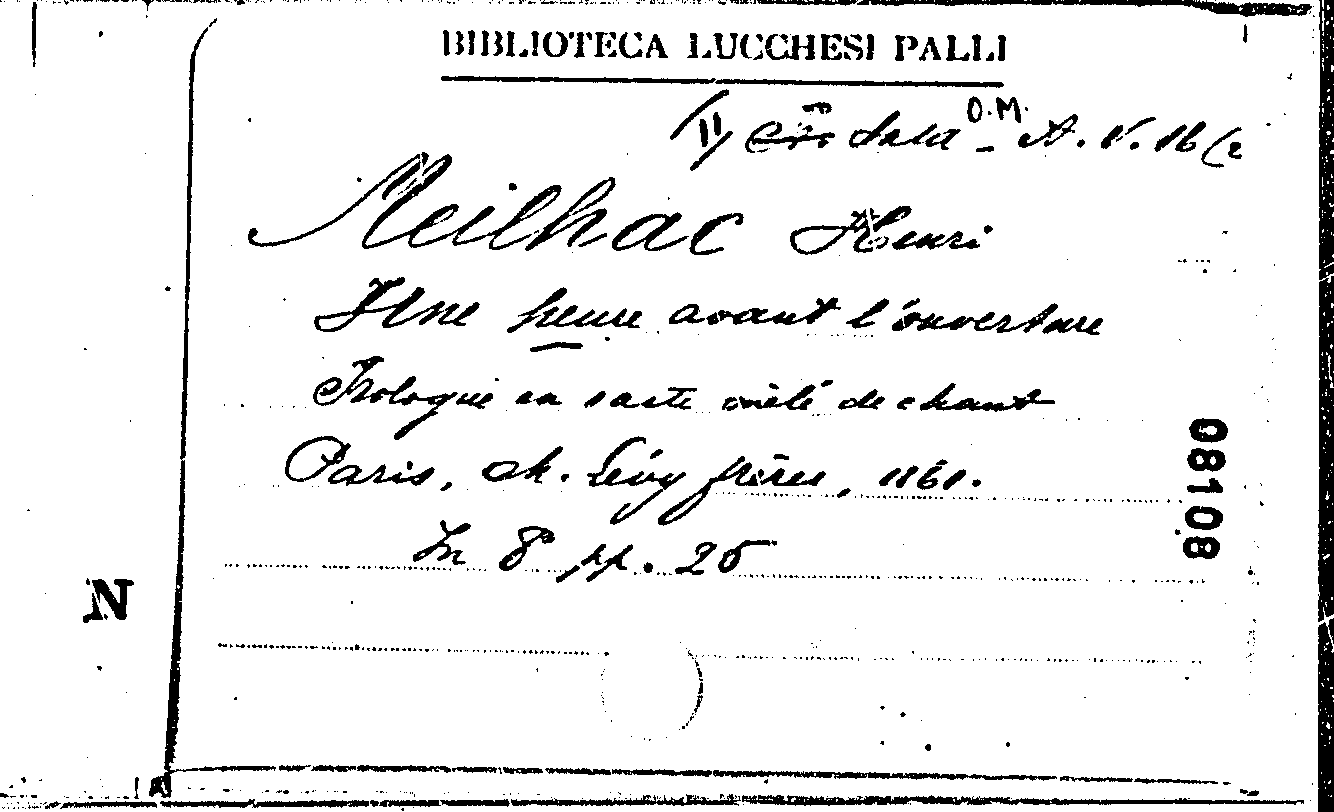 BIBLIOTECA LUCCHESI PALLI
O.M.
II Sala - A. V. 16 (2
Meilhac Henri
Une heure avant l'ouverture
Prologue en un acte mêlé de chant
Paris, Ch. Lévy frères, 1861.
In 8° pp. 25
08108
N